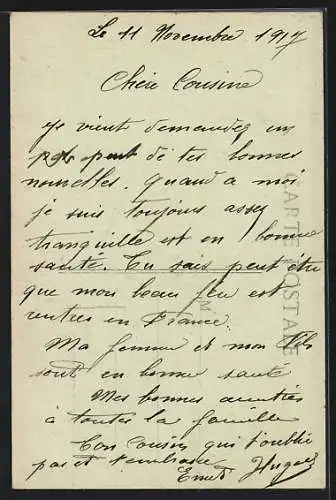 Le 11 Novembre 1917
Chère Cousine
Je vient demandez un
peut de tes bonnes
nouvelles. Quand a moi
je suis toujours assez
tranquille est en bonne
santé. Tu sais peut être
que mon beau est
rentres en France.
Ma femme et mon fils
sont en bonne santé
Mes bonnes amitiés
à toutes la famille
Ton cousin qui t'oublie
pas et t'embrasse
Ernest
CARTE POSTALE